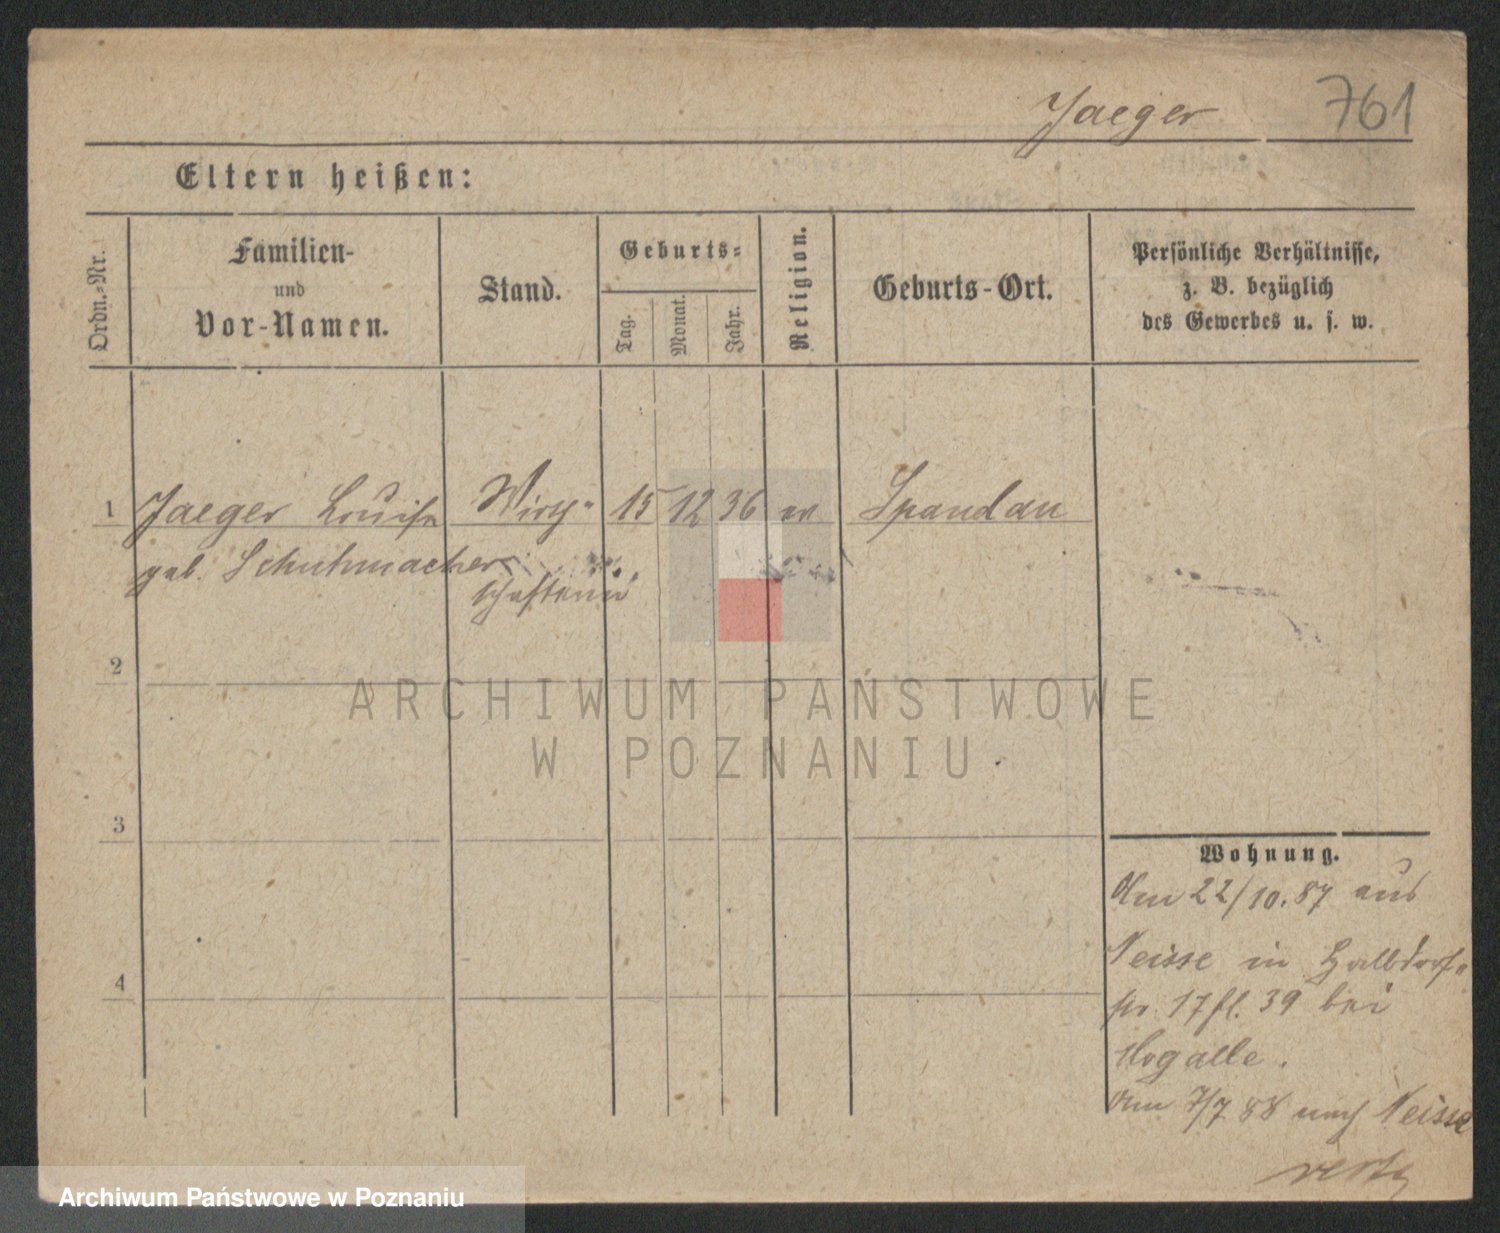 Jaeger 761
Eltern heißen:
Ordn.-Nr.
Familien-
und
Vor-Namen.
Stand.
Geburts-
Tag.
Monat.
Jahr.
Religion.
Geburts-Ort.
Persönliche Verhältnisse,
z. B. bezüglich
des Gewerbes u. s. w.
1 Jaeger Louise Wirth- 15 12 36 ev Spandau
geb. Schuhmacher
schafterin
2
ARCHIWUM PAŃSTWOWE
W POZNANIU
3
Wohnung.
Am 22/10.87 aus
Neisse in Halbdorf-
str 17 bei
4
Am 7/7 88 nach Neisse
Archiwum Państwowe w Poznaniu